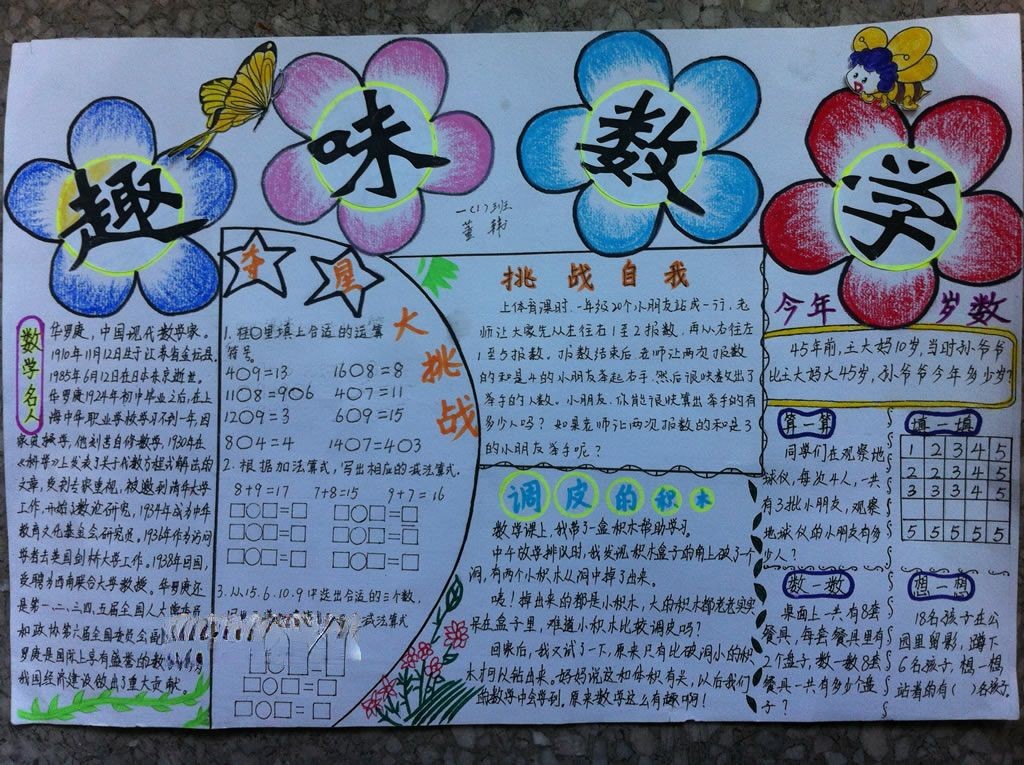 趣味数学
一(1)班
董 韩
数学名人
华罗庚，中国现代数学家。
1910年11月12日生于江苏省金坛县，
1985年6月12日在日本东京逝世。
华罗庚1924年初中毕业之后，在上
海中华职业学校学习不到一年，因
家贫辍学，他刻苦自修数学，1930年在
《科学》上发表了关于代数方程式解法的
文章，受到专家重视，被邀到清华大学
工作，开始数论研究，1934年成为中华
教育文化基金会研究员。1936年作为访问
学者去英国剑桥大学工作。1938年回国，
受聘为西南联合大学教授。华罗庚还
是第一、二、三、四、五届全国人大
和政协第六届全国委员会副
罗庚是国际上享有盛誉的数
我国经济建设做出了重大贡献。
夺星大挑战
1.在○里填上合适的运算
符号。
4○9=13 16○8=8
11○8=9○6 4○7=11
12○9=3 6○9=15
8○4=4 14○7=4○3
2.根据加法算式，写出相应的减法算式。
8+9=17 7+8=15 9+7=16
□○□=□ □○□=□
□○□=□ □○□=□
□○□=□ □○□=□
3.从15.6.10.9中选出合适的三个数，
减法算式
□○□=□
□○□=□
挑战自我
上体育课时，一年级20个小朋友站成一行，老
师让大家先从左往右1至2报数，再从右往左
1至3报数。报数结束后，老师让两次报数
的和是4的小朋友举起右手，然后很快数出了
举手的人数。小朋友，你能很快算出举手的有
多少人吗？如果老师让两次报数的和是3
的小朋友举手呢？
调皮的积木
数学课上，我带了一盒积木帮助学习。
中午放学排队时，我发现积木盒子的角上破了个
洞，有两个小积木从洞中掉了出来。
咦！掉出来的都是小积木，大的积木都老老实实
呆在盒子里，难道小积木比较调皮吗？
回家后，我又试了一下，原来只有比破洞小的积
木才可以钻出来。妈妈说这和体积有关，以后我们
在数学中会学到，原来数学这么有趣啊！
今年 岁数
45年前，王大妈10岁，当时孙爷爷
比王大妈大45岁，孙爷爷今年多少岁？
算一算
同学们在观察地
球仪，每次4人，一共
有3批小朋友，观察
地球仪的小朋友有多
少人？
填一填
1 2 3 4 5
2 2 3 4 5
3 3 3 4 5
5 5 5 5 5
数一数
桌面上一共有8套
餐具，每套餐具里有
2个盘子，数一数8套
餐具一共有多少个盘
子？
想一想
18名孩子在公
园里留影，蹲下
6名孩子，想一想，
站着的有（ ）名孩子。